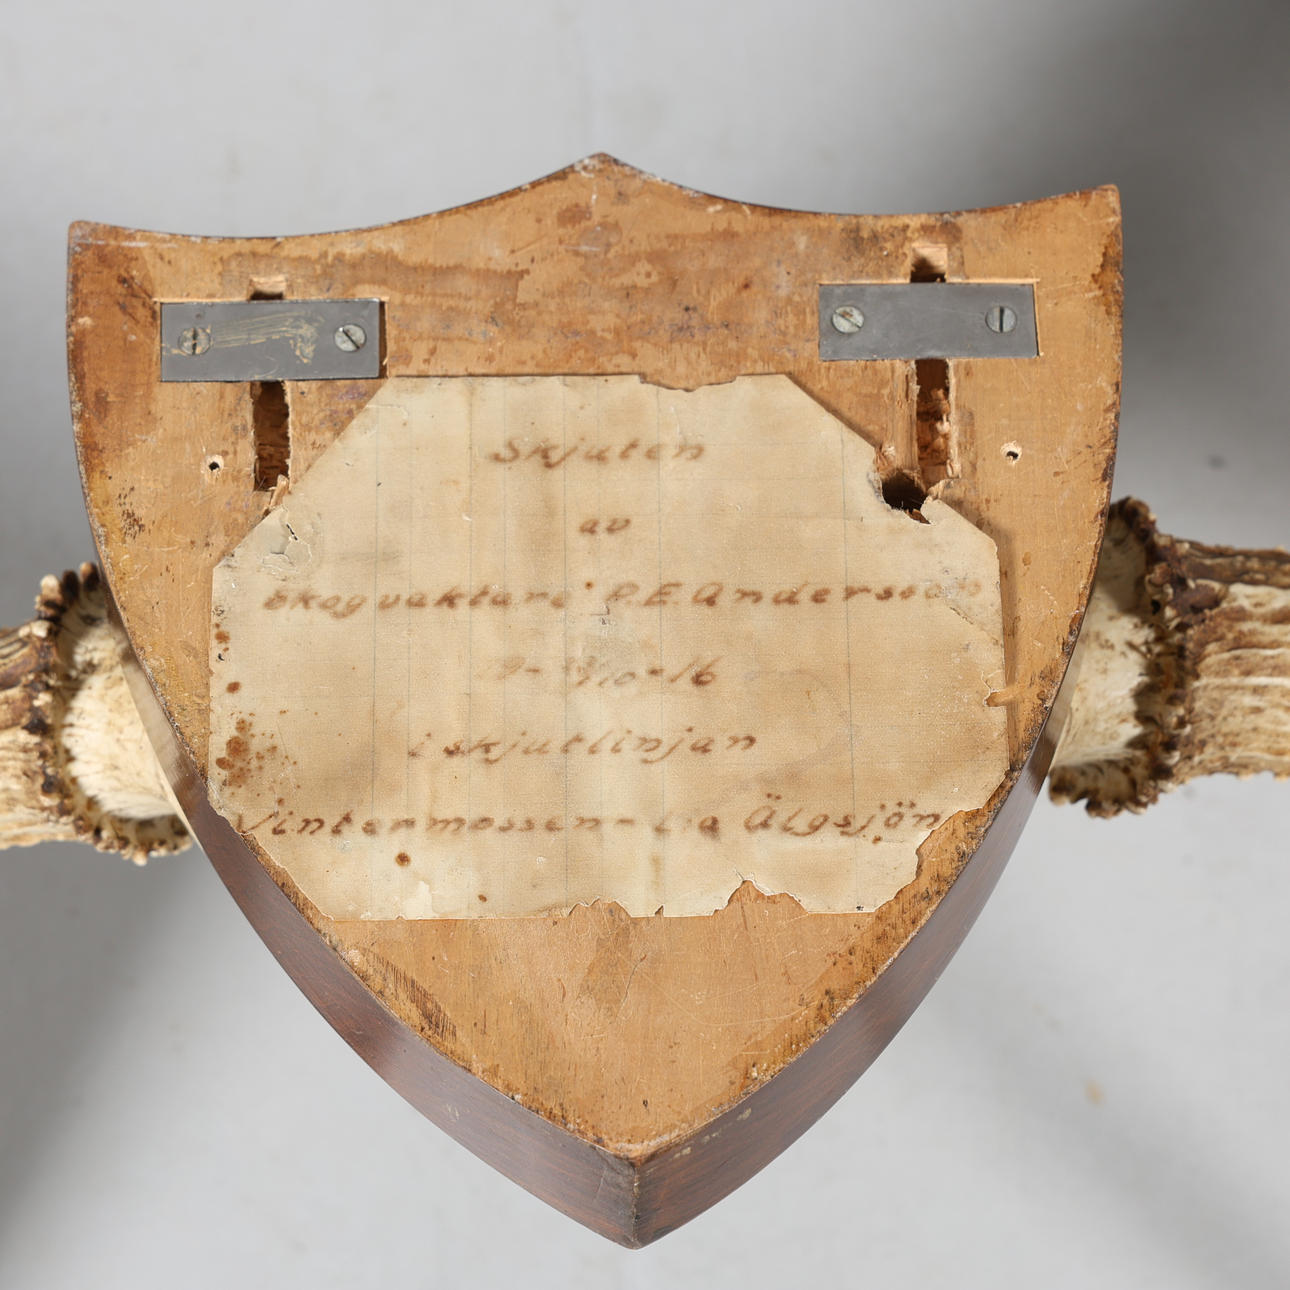 Skjuten
av
skogvaktare P.E. Andersson
/10-16
i skjutlinjan
Vintermossen- Älgsjön